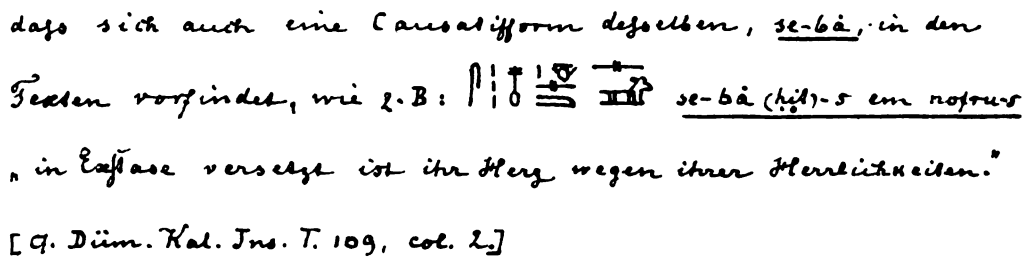 daſs sich auch eine Causatifform deſselben, se-bȧ, in den
Texten vorfindet, wie z. B: se-bȧ (ḥit)-s em nofru-s
„in Exſtase versetzt ist ihr Herz wegen ihrer Herrlichkeiten."
[q. Düm. Kal. Ins. T. 109, col. 2.]